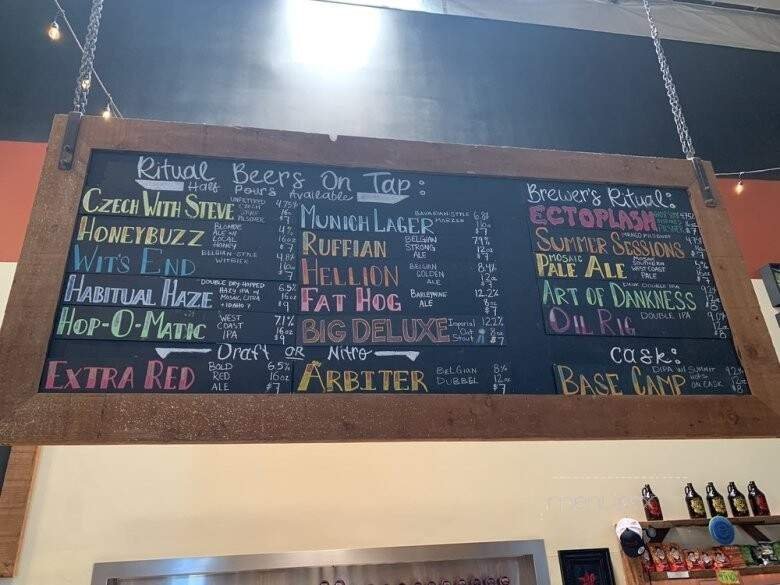 Ritual Beers On Tap:
Half Pours Available
CZECH WITH STEVE UNFILTERED CZECH STYLE PILSNER 4.75% 16oz $7
HONEYBUZZ BLONDE ALE W/ LOCAL HONEY 4% 16oz $7
WIT'S END BELGIAN-STYLE WITBIER 4.8% 16oz $7
HABITUAL HAZE DOUBLE DRY-HOPPED HAZY IPA W/ MOSAIC, CITRA 6.5% 16oz $8
HOP-O-MATIC WEST COAST IPA 7.1% 16oz $7
MUNICH LAGER BAVARIAN-STYLE MARZEN 6.8% $7
RUFFIAN BELGIAN STRONG ALE 7.9% 12oz $7
HELLION BELGIAN GOLDEN ALE 8.4% 12oz
FAT HOG BARLEYWINE ALE 12.2% 8oz $7
BIG DELUXE Imperial Oat Stout 12.2% 8oz $7
Draft OR Nitro
EXTRA RED BOLD RED ALE 6.5% 16oz $7
ARBITER BELGIAN DUBBEL 8% 12oz $7
Brewer's Ritual:
ECTOPLASH
SUMMER SESSIONS
PALE ALE MOSAIC WEST COAST PALE
ART OF DANKNESS DANK DOUBLE IPA
OIL RIG DOUBLE IPA
Cask:
BASE CAMP DIPA W/ SUMMIT HOPS ON CASK 9.2% 12oz $8